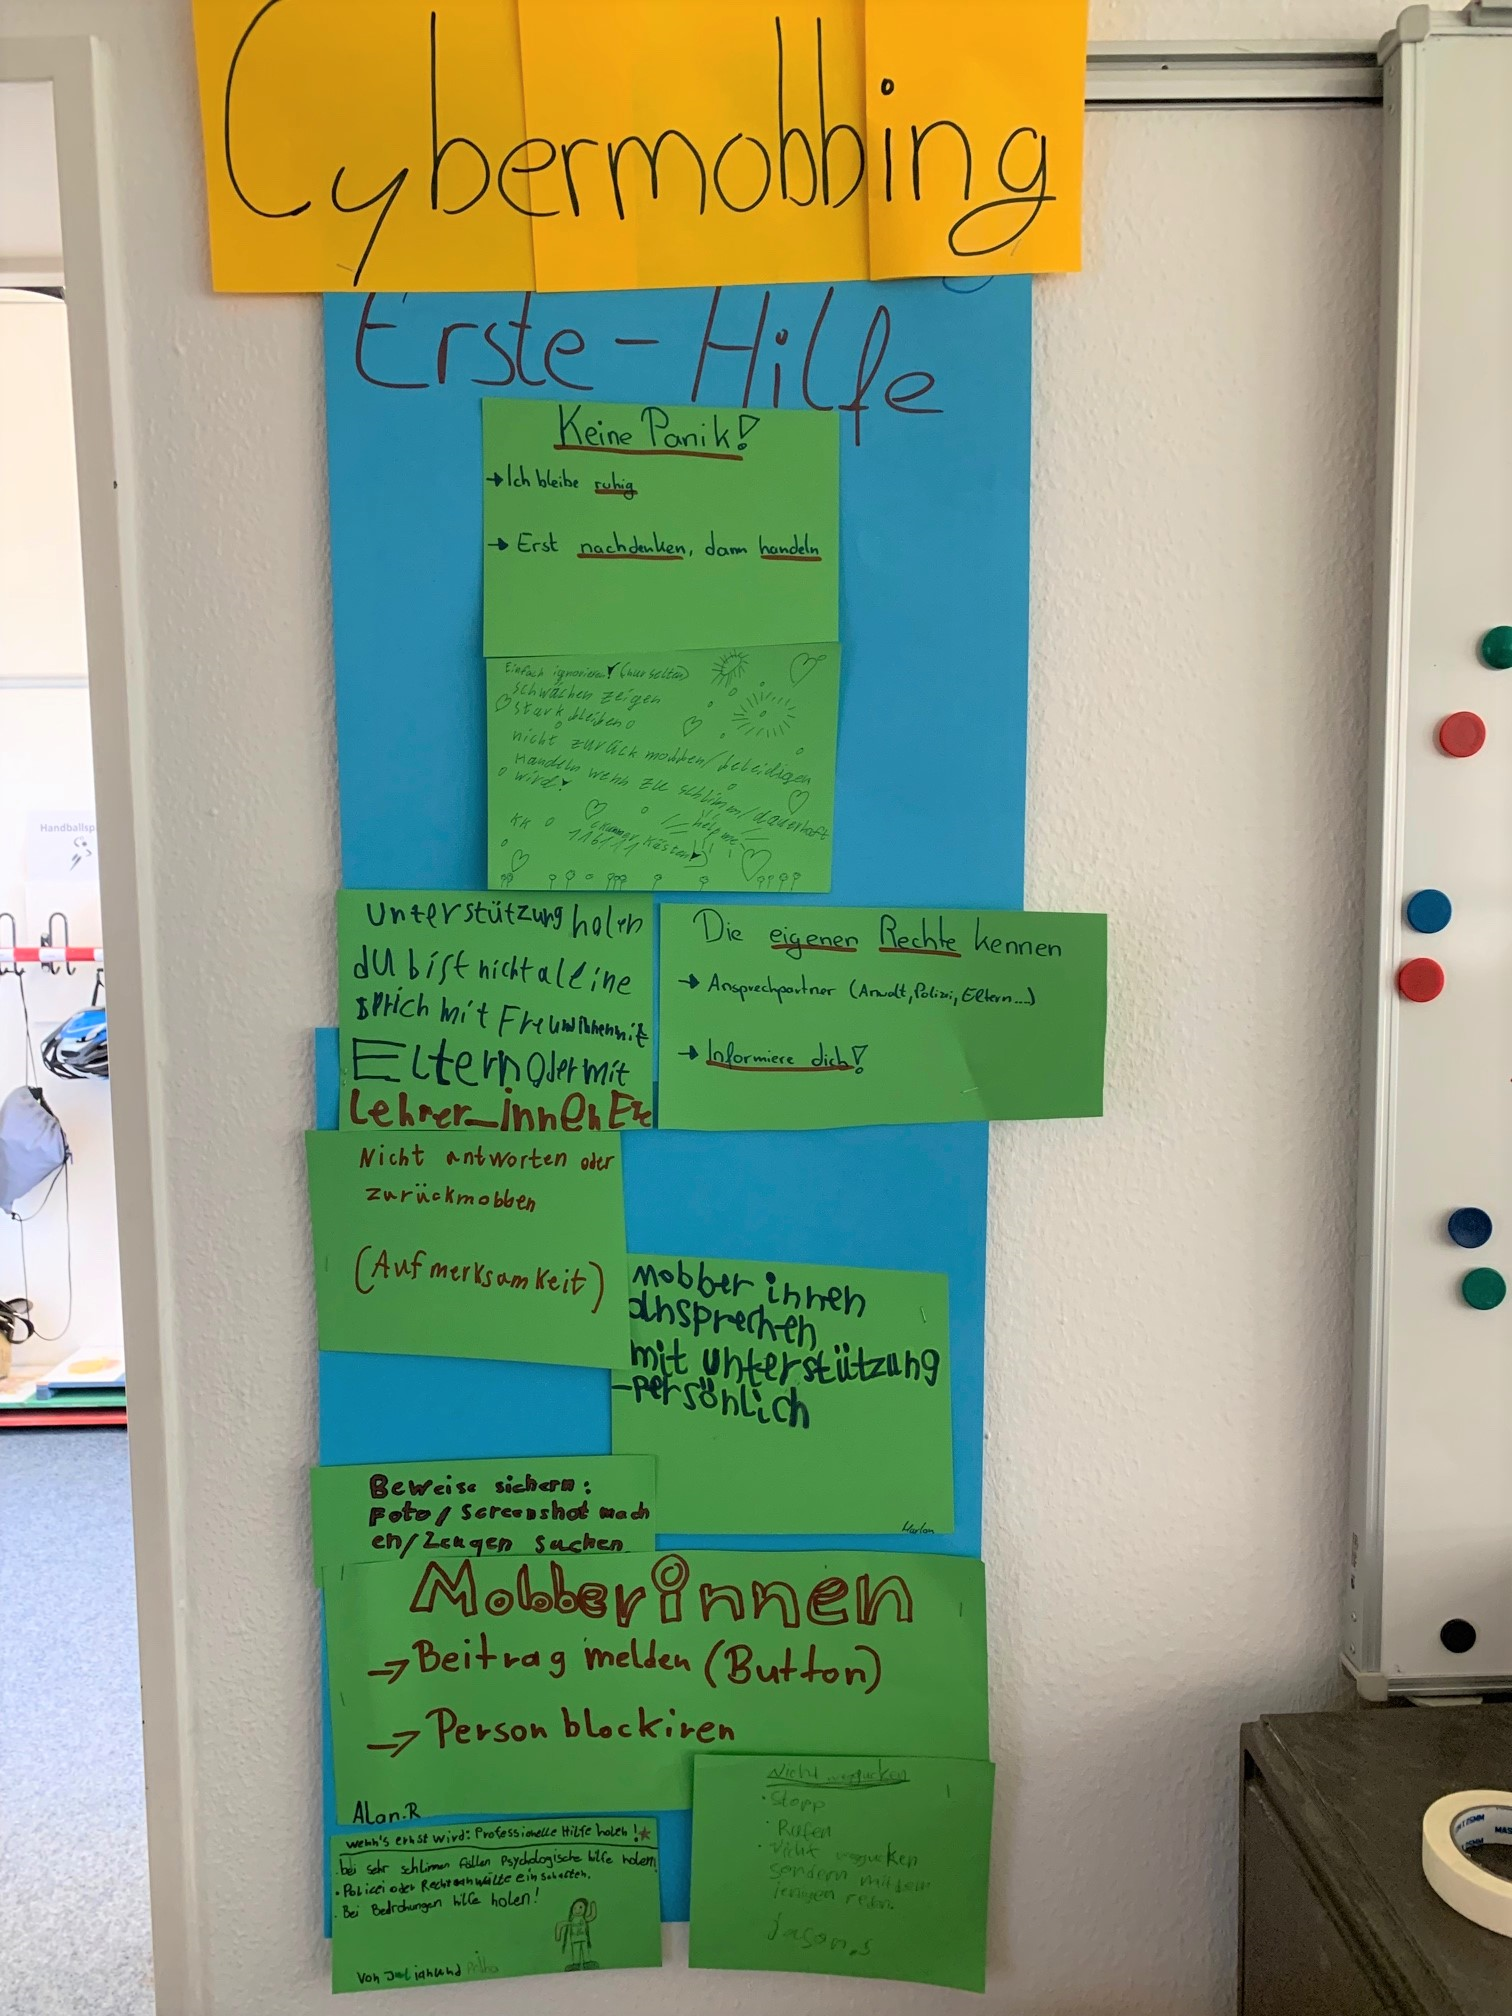 Cybermobbing
Erste-Hilfe
Keine Panik!
→ Ich bleibe ruhig
→ Erst nachdenken, dann handeln
Einfach ignorieren! (nur selten)
schwächen zeigen
stark bleiben
nicht zurück mobben/beleidigen
Handeln wenn zu schlimm/dauerhaft
wird!
help me
KK
kummer kästen!
116111
Unterstützung holen
dU bist nicht alleine
sprich mit Freundinnen mit
Eltern oder mit
Lehrer_innen Etc
Die eigenen Rechte kennen
→ Ansprechpartner (Anwalt, Polizei, Eltern...)
→ Informiere dich!
Nicht antworten oder
zurückmobben
(Aufmerksamkeit)
Mobber innen
ansprechen
mit unterstützung
-persönlich
Marlon
Beweise sichern:
Foto/Screenshot mach
en/Zeugen suchen
Mobberinnen
→ Beitrag melden (Button)
→ Person blockiren
Alan.R
wenn's ernst wird: Professionelle Hilfe holen!
· bei sehr schlimmen fällen Psychologische hilfe holen!
· Polizei oder Rechtsanwälte einschalten.
· Bei Bedrohungen hilfe holen!
von Julian und
Nicht weggucken
· Stopp
· Rufen
· Nicht weggucken
sondern mit dem
jenigen reden.
Jason.S
Handballsp